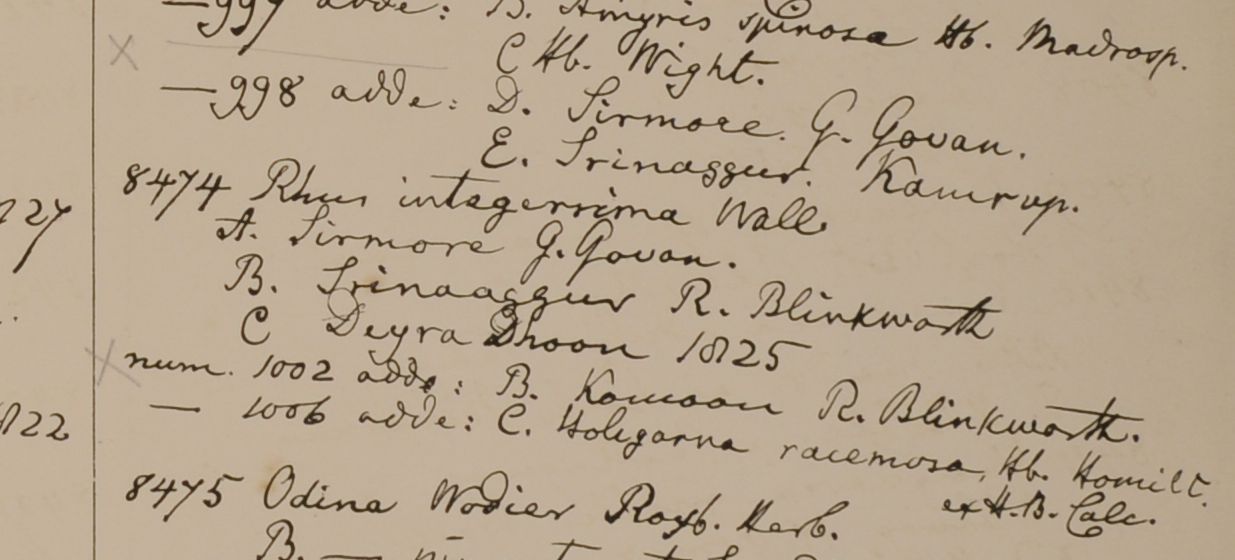 —997 adde: B. Amyris spinosa Hb. Madrasp.
C Hb. Wight.
—998 adde: D. Sirmore. G. Govan.
E. Srinaggur. Kamrup.
8474 Rhus integerrima Wall.
A. Sirmore G. Govan.
B. Srinaaggur R. Blinkworth
C Deyra Dhoon 1825
num. 1002 adde: B. Kamaon R. Blinkworth.
— 1006 adde: C. Holigarna racemosa, Hb. Hamilt.
ex H.B. Calc.
8475 Odina Wodier Roxb. Herb.
B. —
127
1822